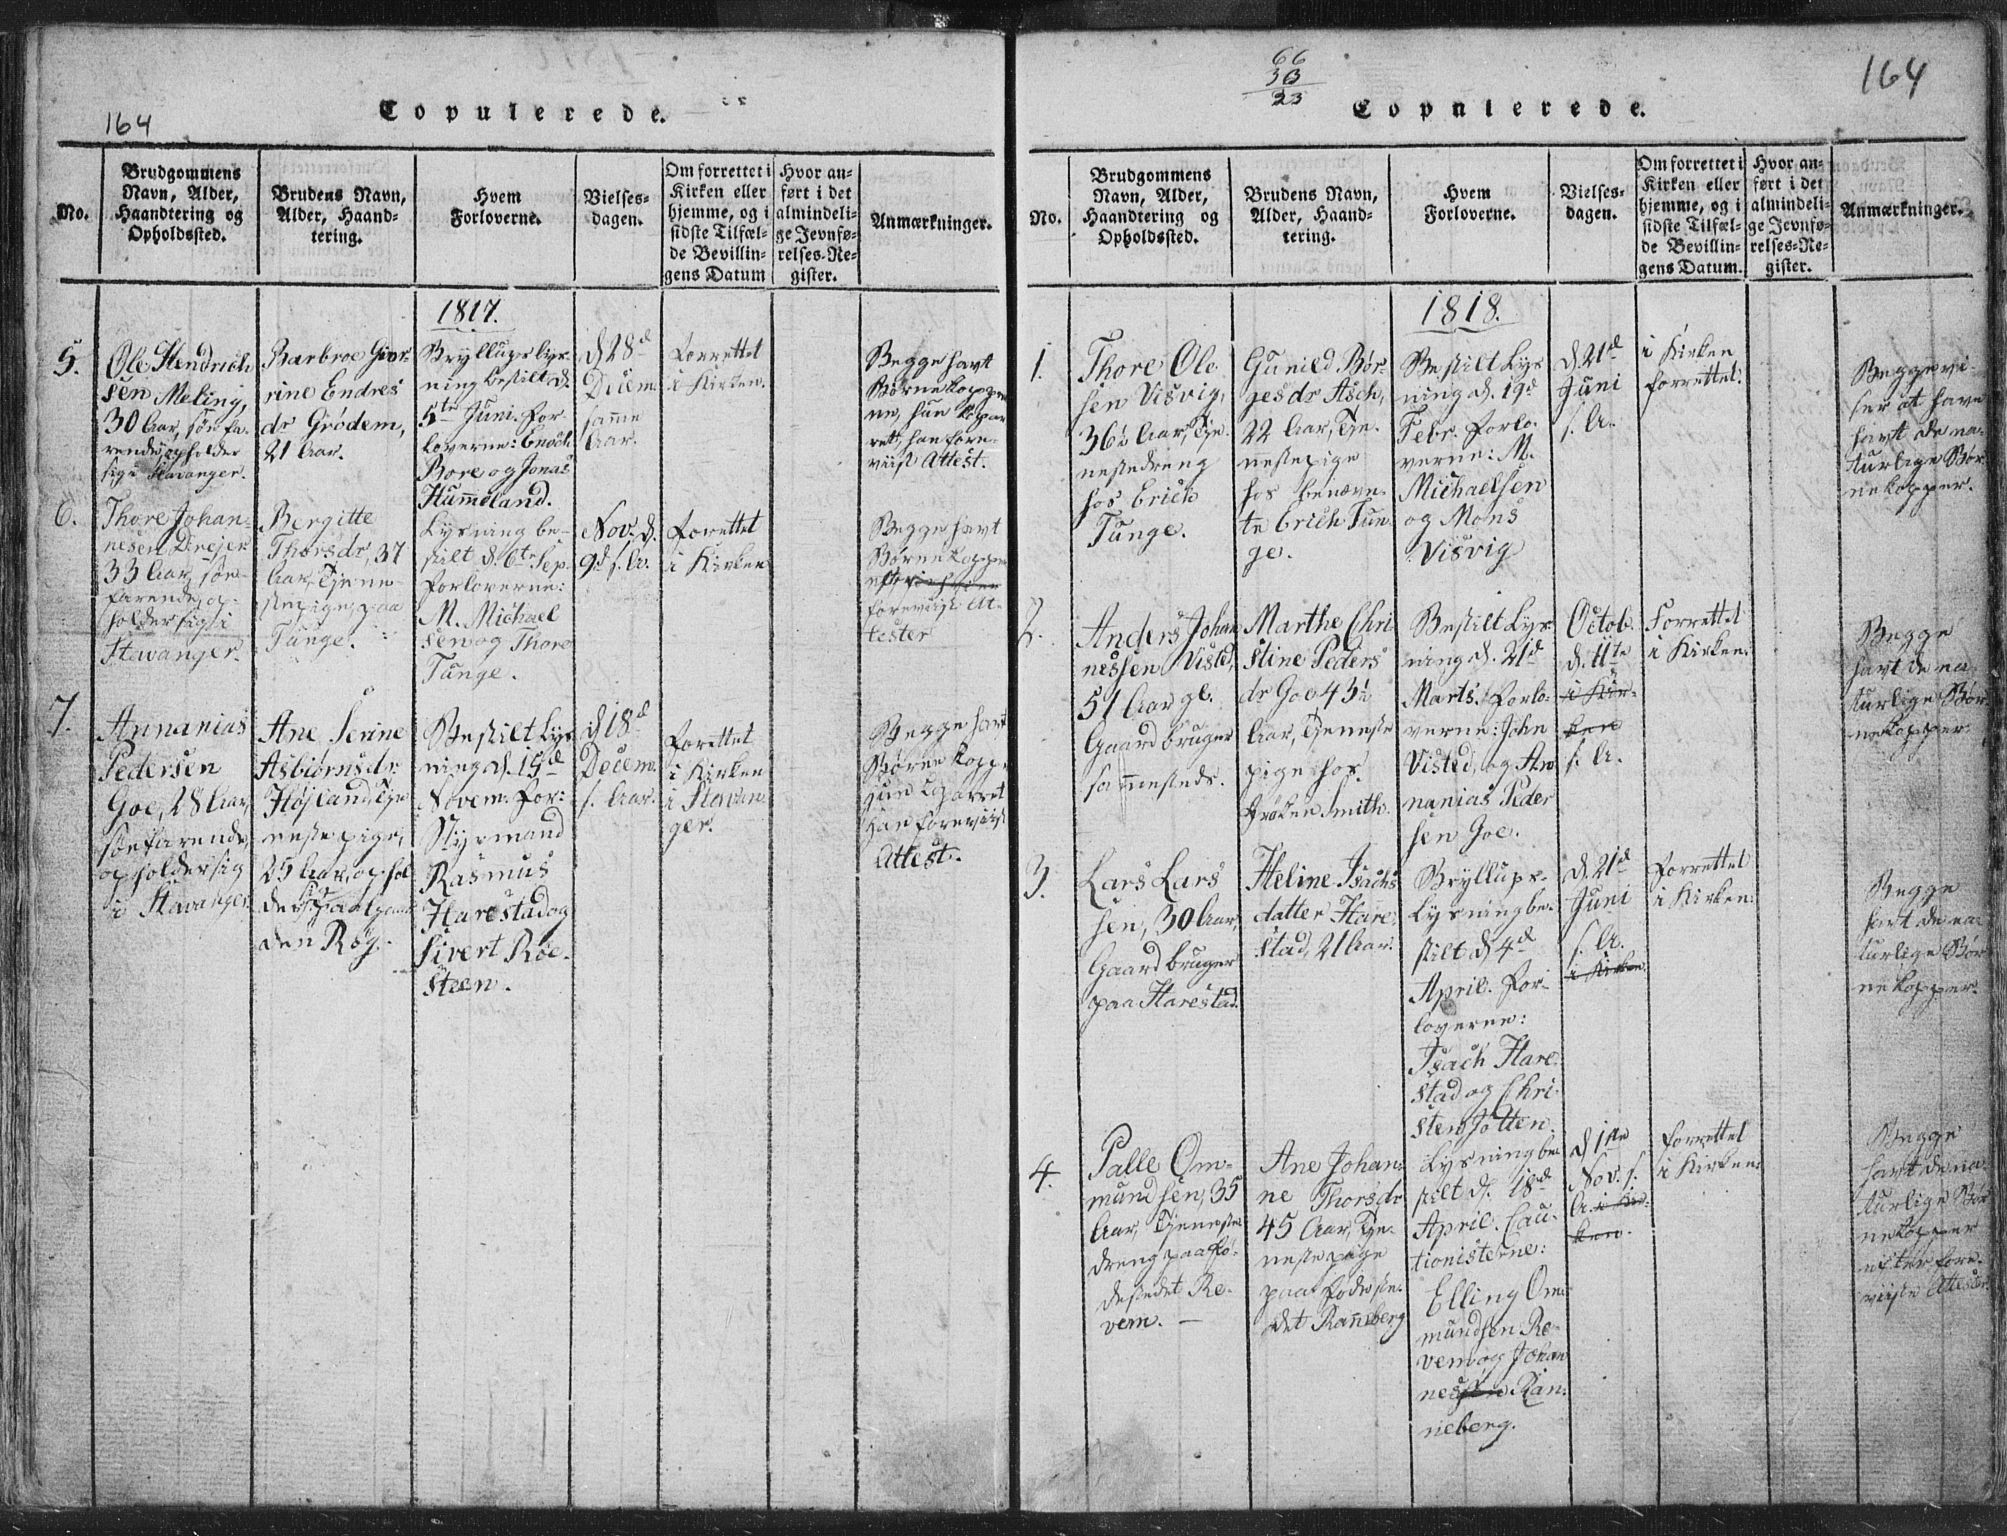 164
Copulerede.
No.
Brudgommens
Navn, Alder,
Haandtering og
Opholdssted.
Brudens Navn,
Alder, Haand-
tering.
Hvem
Forloverne.
Vielses-
dagen.
Om forrettet i
Kirken eller
hjemme, og i
sidste Tilfæl-
de Bevillin-
gens Datum
Hvor an-
ført i det
almindeli-
ge Jevnfø-
relses-Re-
gister.
Anmærkninger.
1817.
5.
Ole Hendrich
sen Meling,
30 Aar, søefa-
rende opholder
sig i Stavanger.
Barbroe Gior-
rine Endres
dr Grödem,
21 Aar.
Bryllups lys-
ning bestilt d.
5te Juni. For-
loverne: Enoch
Bore og Jonas
Hummeland.
d 28d
Decem.
samme
Aar.
Forrettet
i Kirken.
Begge havt
Børnekopper
ne, hun Kopar
ret, han fore-
viist Attest.
6.
Thore Johan-
nesen Drejer
33 Aar, søe-
farende, op-
holder sig i
Stavanger.
Bergitte
Thorsdr, 37
Aar, Tjene-
stepige, paa
Tunge.
Lysning be-
stilt d. 6te Sep.
Forloverne:
M. Michael
sen og Thore
Tunge.
Nov. d.
9d s. A.
forettet
i Kirken
Begge havt
Børnekopper
foreviist At-
tester
7.
Annanias
Pedersen
Goe, 28 Aar,
søefarende,
opholder sig
i Stavanger.
Ane Serine
Asbiörnsdr.
Höjland Tje
nestepige,
25 Aar, ophol
der sig paa Gaar
den Røg.
Bestilt Lys
ning d. 19d
Novem. For:
Styrmand
Rasmus
Harestad og
Sivert Röe-
steen.
d 18d
Decem.
s. Aar.
forettet
i Kirken
i Stavan
ger.
Begge havt
Børnekopper
hun Koparret
han foreviist
Attest.
66
33
23
164
Copulerede.
No.
Brudgommens
Navn, Alder,
Haandtering og
Opholdssted.
Brudens Navn,
Alder, Haand-
tering.
Hvem
Forloverne.
Vielses-
dagen.
Om forrettet i
Kirken eller
hjemme, og i
sidste Tilfæl-
de Bevillin-
gens Datum.
Hvor an-
ført i det
almindeli-
ge Jevnfø-
relses-Re-
gister.
Anmærkninger.
1818.
1.
Thore Ole
sen Visvig,
36½ Aar, Tje-
nestedreng
hos Erich
Tunge.
Gunild Bör-
gesdr Asch,
22 Aar, Tje-
nestepige
hos benævn-
te Erich Tun-
ge.
Bestilt Lys
ning d. 19d
Febr. Forlo-
verne: M.
Michaelsen
og Mons
Visvig
d. 21d
Juni
s. A.
i Kirken
forrettet.
Begge vi-
ser at have
havt de na-
turlige Bør-
nekopper.
2.
Anders Johan
nessen Visted,
51 Aar gl.
Gaardbruger
sammesteds.
Marthe Chri
stine Peders
dr Goe 43½
Aar, Tjeneste
pige hos
Frøken Smith.
Bestilt Lys
ning d. 21d
Marts. Forlo-
verne: John
Visted, og An
nanias Peder
sen Goe.
Octob.
d. 11te
i Kir-
ken
s. A.
Forrettet
i Kirken.
Begge
havt de na-
turlige Bør-
nekopper.
3.
Lars Lars
sen, 30 Aar,
Gaardbruger
paa Harestad.
Heline Isachs
datter Hare-
stad, 21 Aar.
Bryllups-
Lysning be-
stilt d 4d
April. For-
loverne:
Isach Hare-
stad og Chri-
sten Jotten.
d. 21d
Juni
s. A.
i Kirken
forrettet
i Kirken.
Begge
havt de na-
turlige Bør
nekopper.
4.
Palle Om-
mundsen, 35
Aar, Tjeneste
dreng paa Fø-
destedet Re-
vem. —
Ane Johan-
ne Thorsdr
45 Aar, Tje-
nestepige
paa Fødeste-
det Ranneberg
Lysning be-
stilt d. 18d
April. Cau-
tionisterne:
Elling Om-
mundsen Re-
vem og Johan
nessen Ran-
neberg.
d 1ste
Nov. s.
A. i Kir-
ken.
forrettet
i Kirken
Begge
havt de na-
turlige Bør
nekopper
efter fore-
viiste Attester.